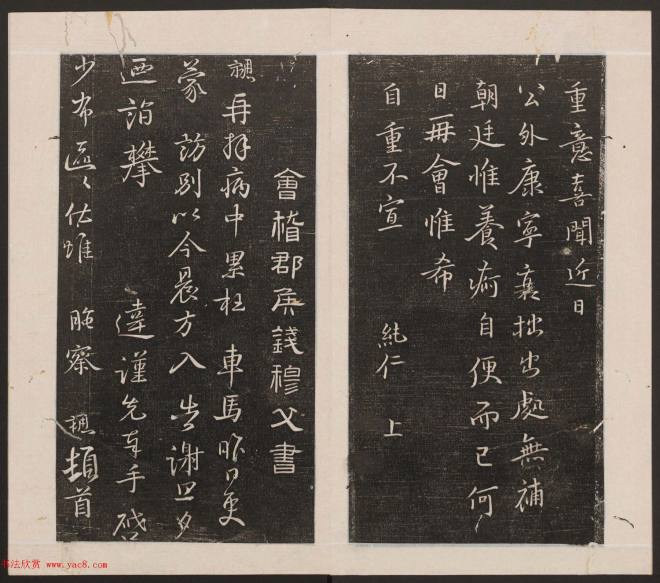 重意喜聞近日
公外康寧衰拙出處無補
朝廷惟養痾自便而已何
日再會惟希
自重不宣 純仁 上
會稽郡侯錢穆父書
勰再拜病中累枉車馬昨日更
蒙訪別以今晨方入告謝旦夕
迺詣攀違謹先奉手啓
少布區〻伏惟 眎察 勰頓首
书法欣赏 www.yac8.com